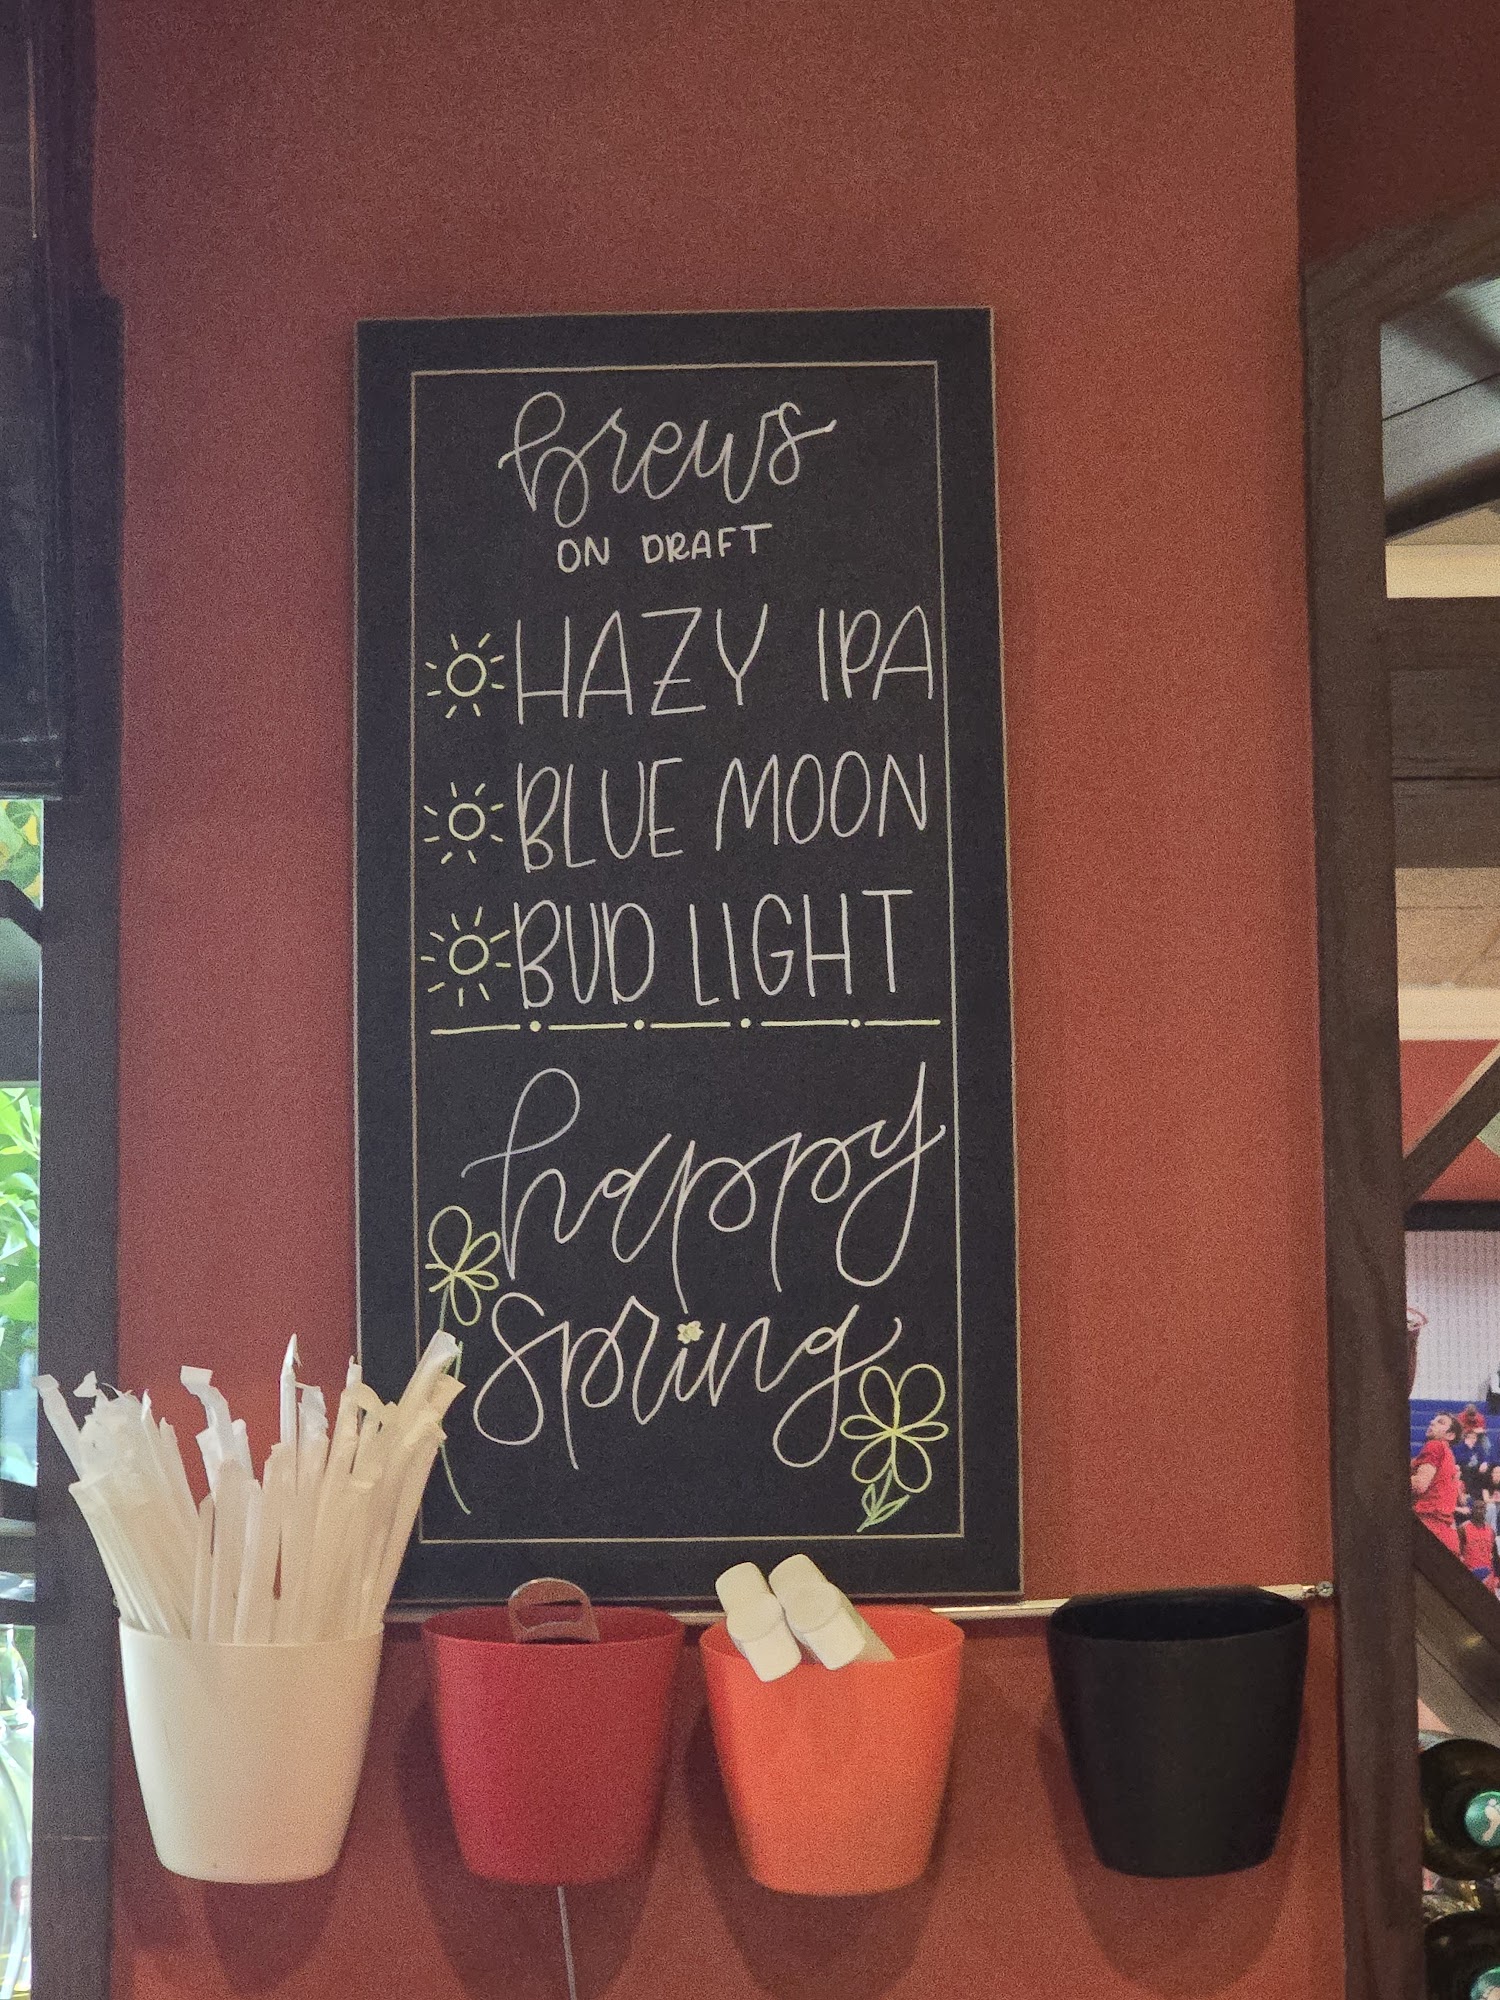 brews
ON DRAFT
HAZY IPA
BLUE MOON
BUD LIGHT
happy
spring